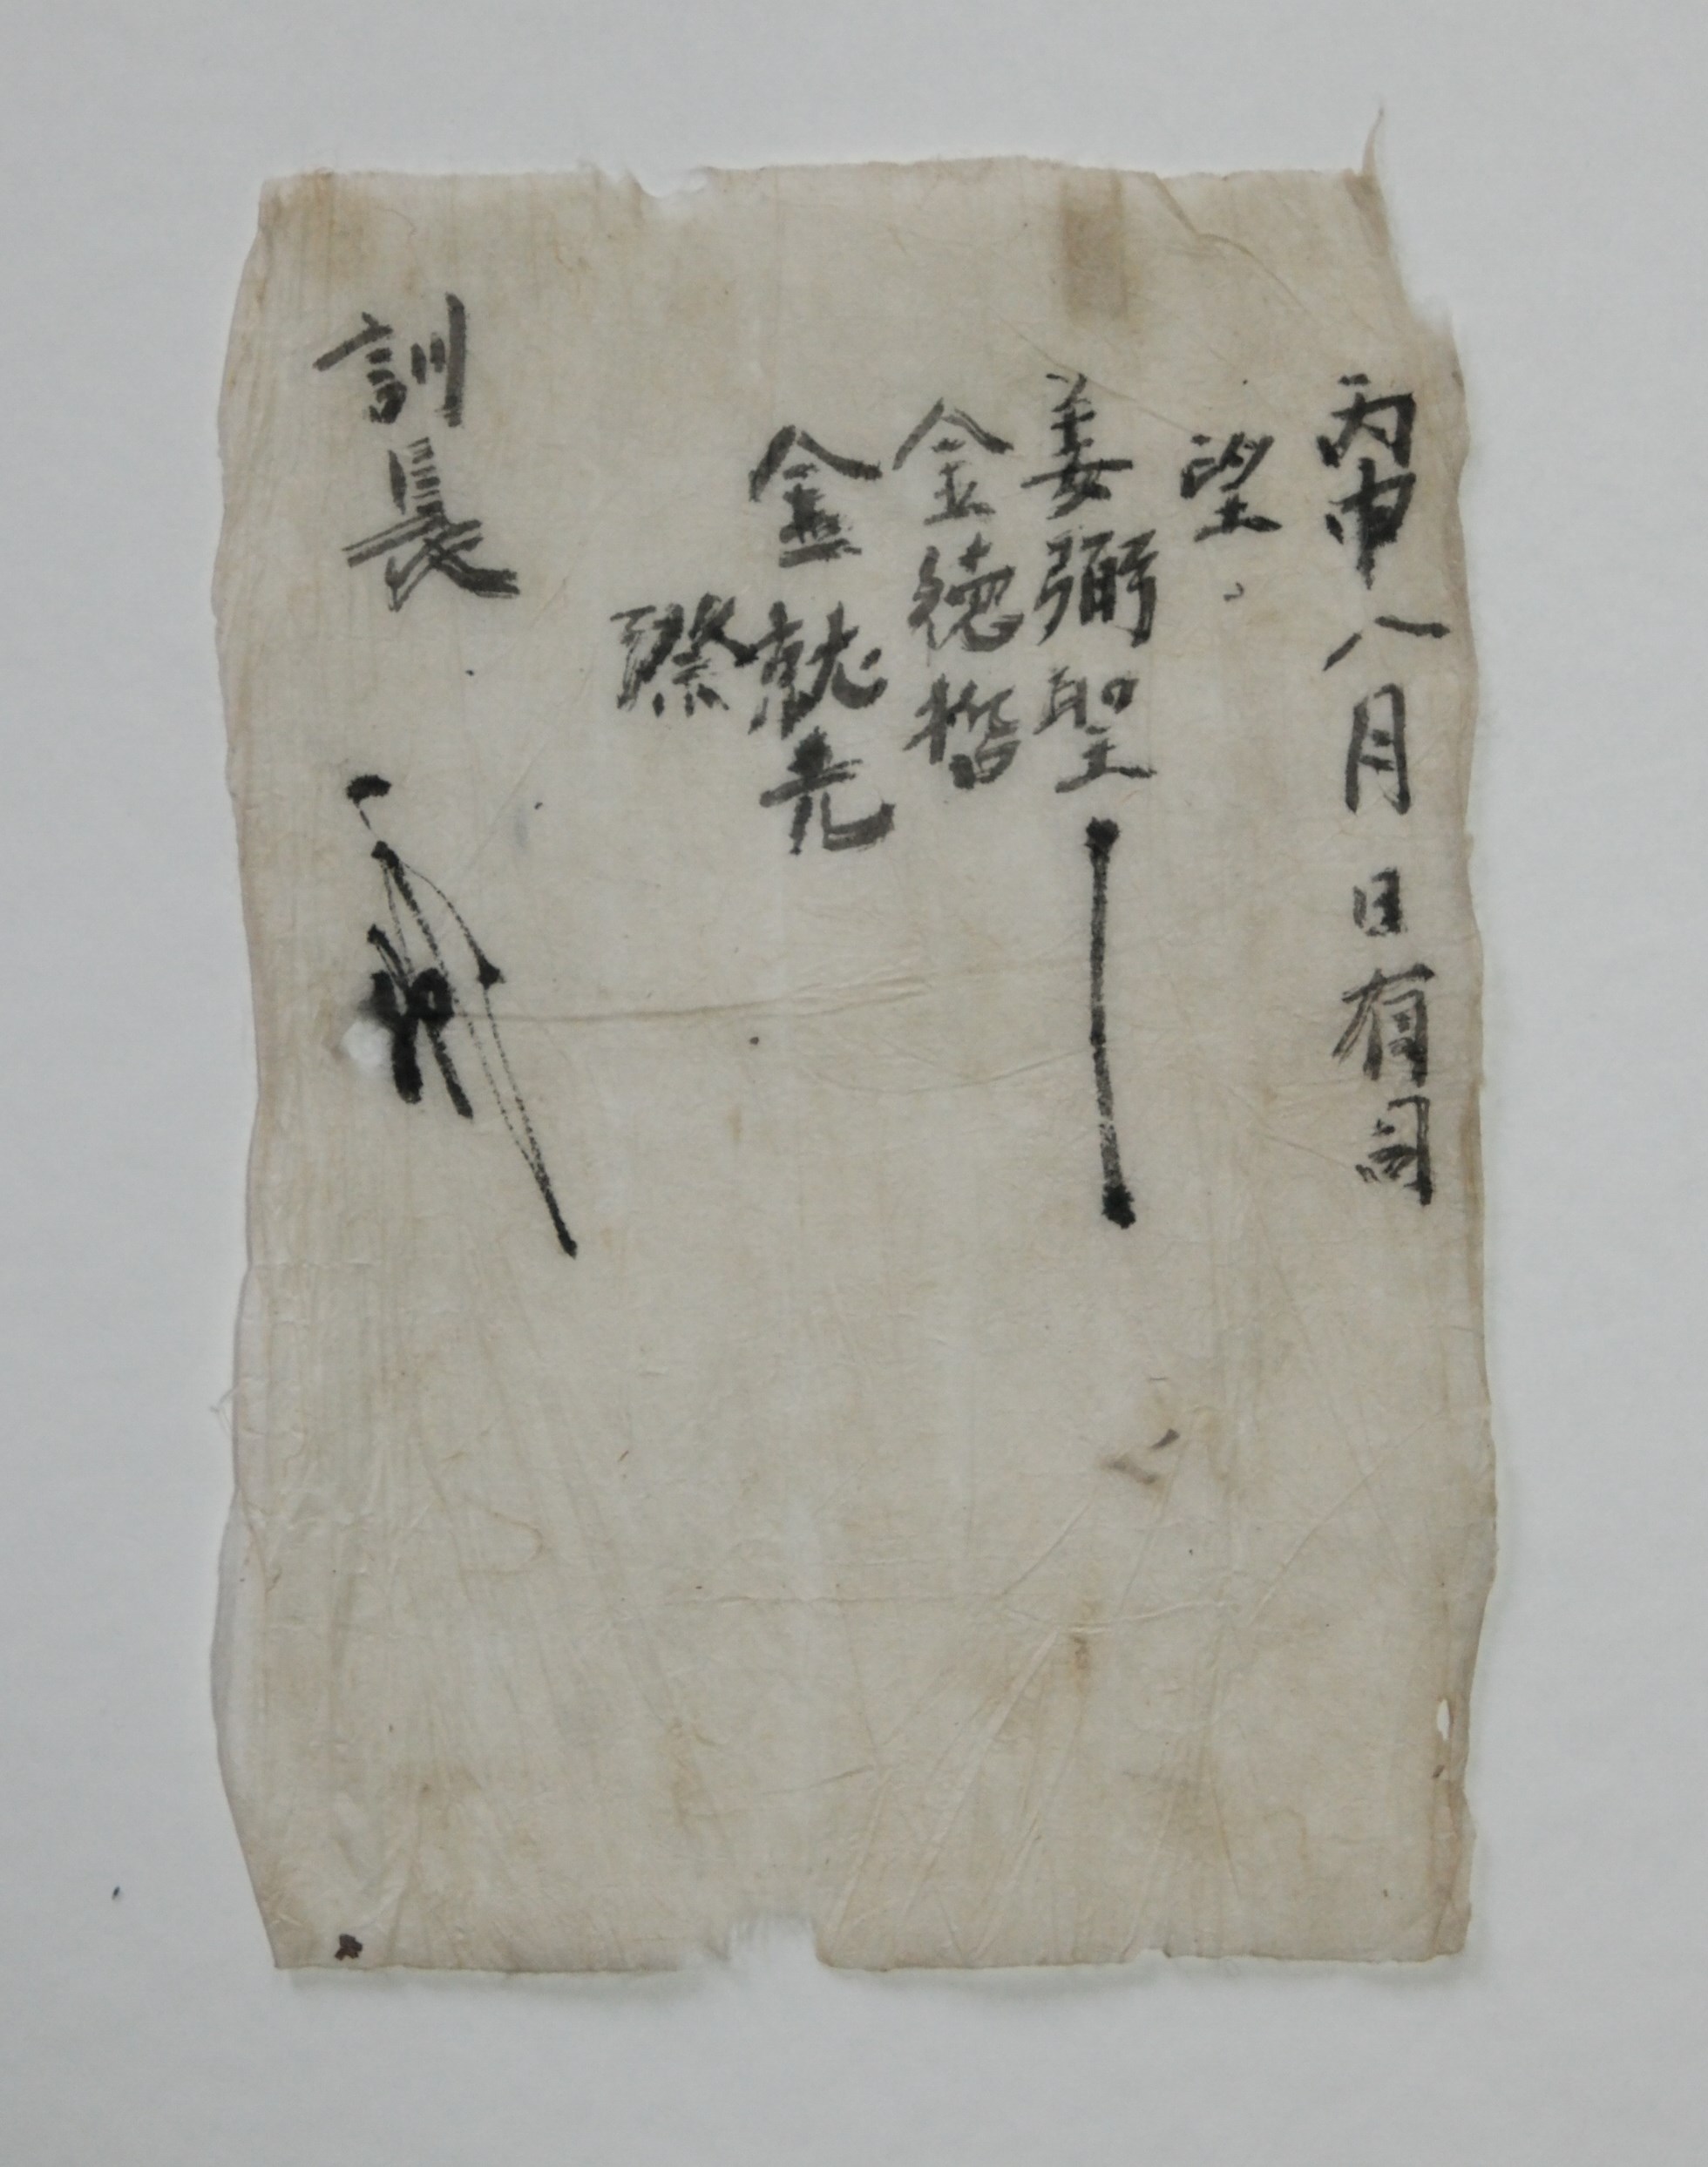 丙申八月 日有司
望
姜弼聖
金德楷
金就光
際
訓長